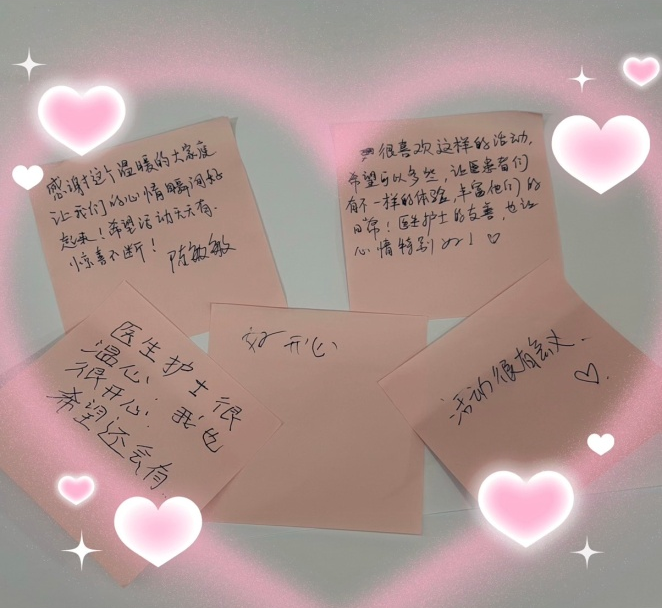 感谢这个温暖的大家庭
让我们的心情瞬间好
起来！希望活动天天有.
惊喜不断！
陈敏敏
很喜欢这样的活动,
希望可以多然, 让医患者们
有不一样的体验, 丰富他们的
日常！医生护士的友善, 也让
心情特别好！♡
医生护士很
温心.
很开心. 我也
希望还会有..
好开心
活动很有意义.
♡.